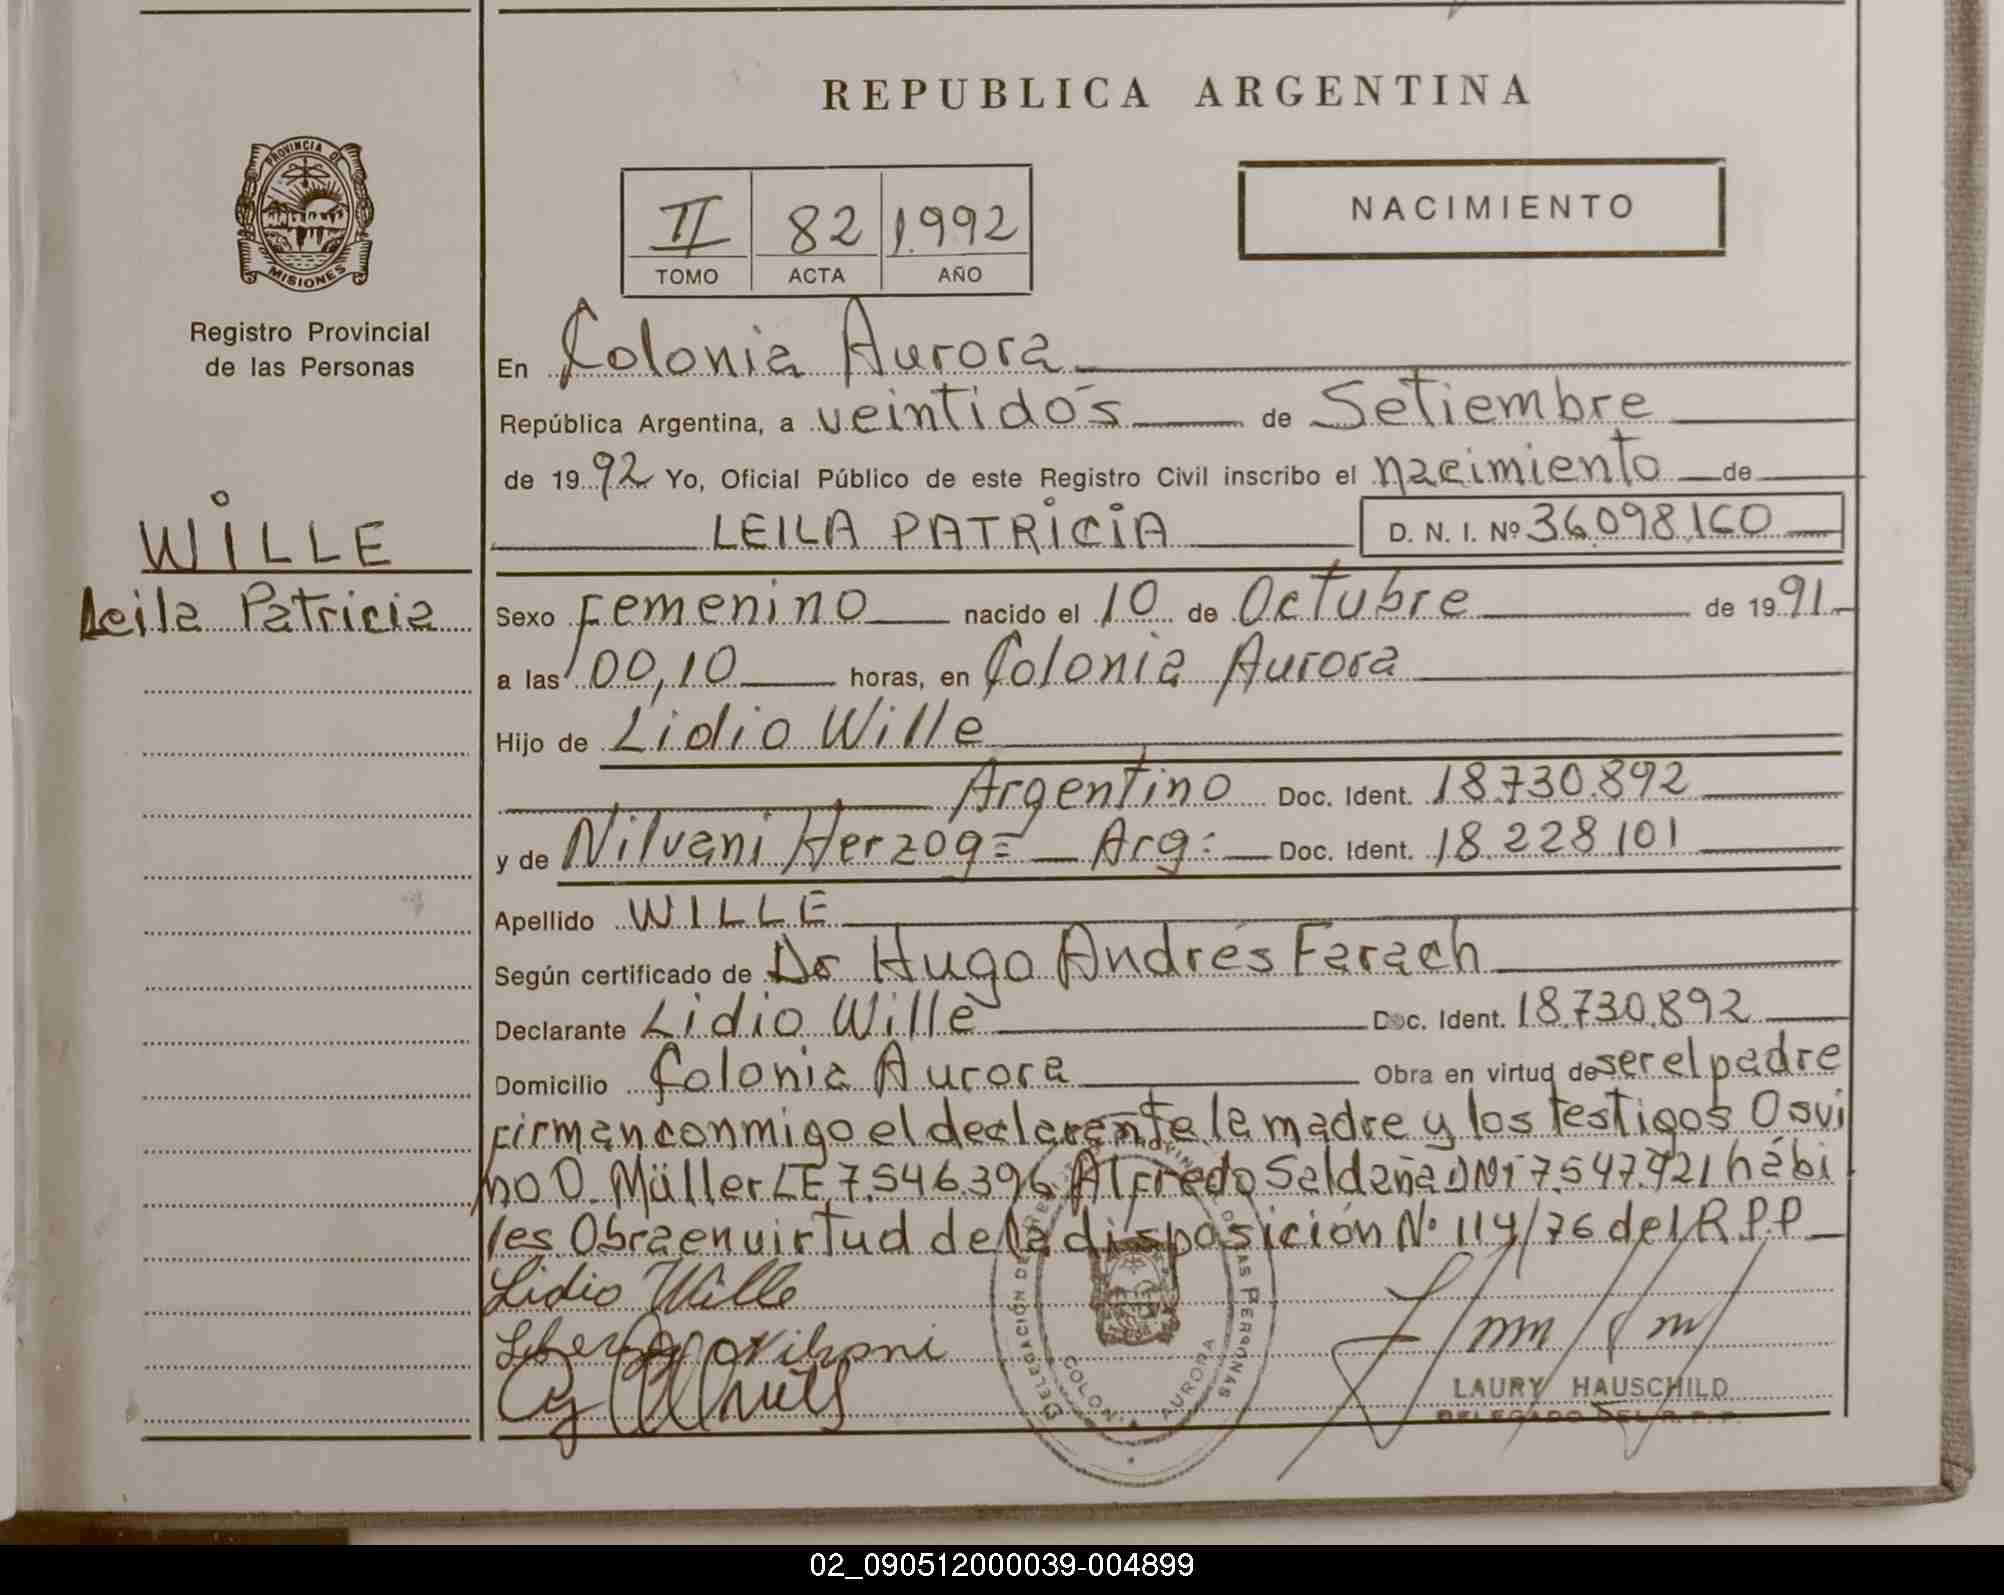 REPUBLICA ARGENTINA
PROVINCIA DE
MISIONES
Registro Provincial
de las Personas
WILLE
Leila Patricia
II 82 1.992
TOMO ACTA AÑO
NACIMIENTO
En Colonia Aurora
República Argentina, a veintidós de Setiembre
de 1992 Yo, Oficial Público de este Registro Civil inscribo el nacimiento de
LEILA PATRICIA D. N. I. Nº 36.098.160
Sexo Femenino nacido el 10 de Octubre de 1991
a las 00,10 horas, en Colonia Aurora
Hijo de Lidio Wille
Argentino Doc. Ident. 18.730.892
y de Nilvani Herzog= Arg: Doc. Ident. 18.228.101
Apellido WILLE
Según certificado de Dr Hugo Andrés Farach
Declarante Lidio Wille Doc. Ident. 18.730.892
Domicilio Colonia Aurora Obra en virtud de ser el padre
firman conmigo el declarante la madre y los testigos Osvi
no O. Müller LE 7.546.396 Alfredo Saldaña DNI 7.547.921 hábi
les Obra en virtud de la disposición Nº 114/76 del R.P.P
Lidio Wille
DELEGACIÓN DE LAS PERSONAS
COLONIA AURORA
LAURY HAUSCHILD
DELEGADO DEL R. P. P.
02_090512000039-004899